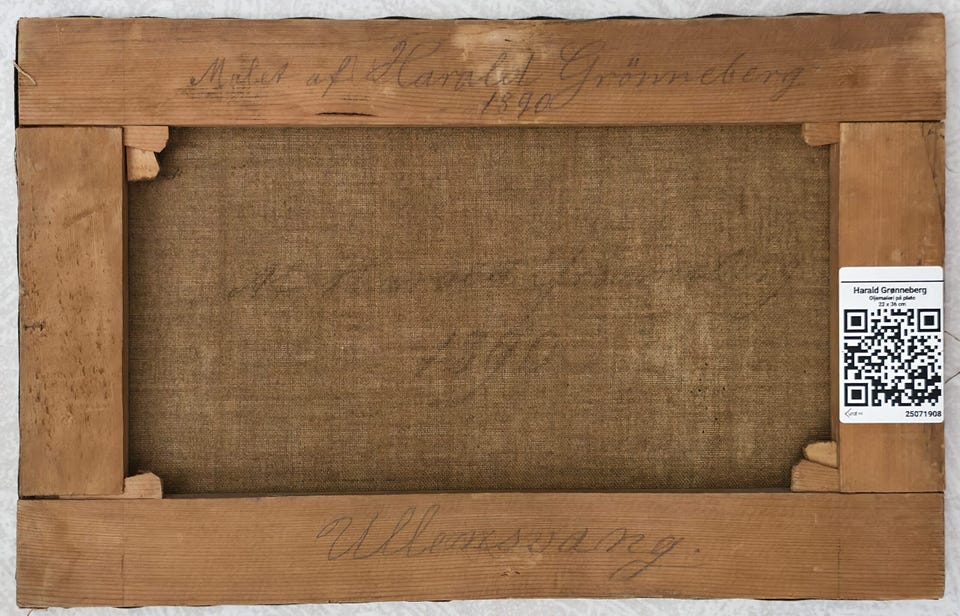 Malet af Harald Grönneberg
1890
M. Harald Grönneberg
1890
Harald Grønneberg
Oljemaleri på plate
22 x 36 cm
25071908
Ullensvang.